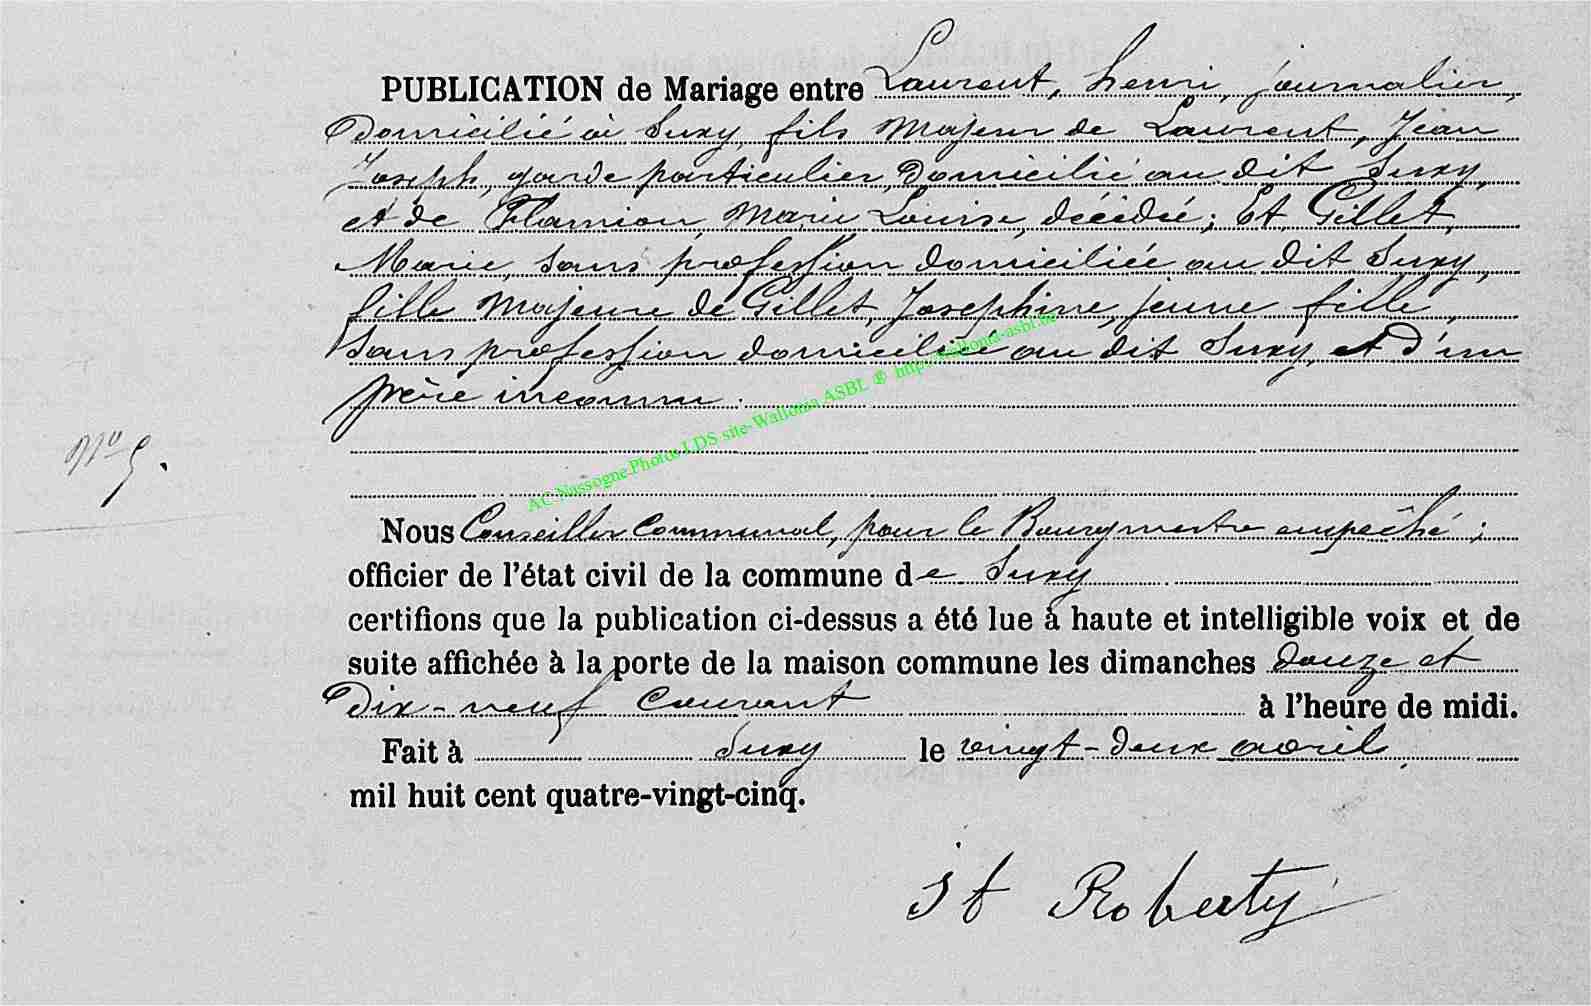 PUBLICATION de Mariage entre Laurent, henri, journalier,
Domicilié à Suxy, fils majeur de Laurent, Jean
Joseph, garde particulier, Domicilié au dit Suxy,
et de Flamion, Marie Louise, décédée ; Et Gillet,
Marie, sans profession domiciliée au dit Suxy,
fille majeure de Gillet, Josephine, jeune fille,
sans profession domiciliée au dit Suxy, et d'un
père inconnu.
AC Nassogne Photos LDS site-Wallonia ASBL © http://wallonia-asbl.be
No 5.
Nous Conseiller Communal, pour le Bourgmestre empêché ;
officier de l'état civil de la commune de Suxy
certifions que la publication ci-dessus a été lue à haute et intelligible voix et de
suite affichée à la porte de la maison commune les dimanches douze et
Dix-neuf courant à l'heure de midi.
Fait à Suxy le vingt-deux avril
mil huit cent quatre-vingt-cinq.
Roberty